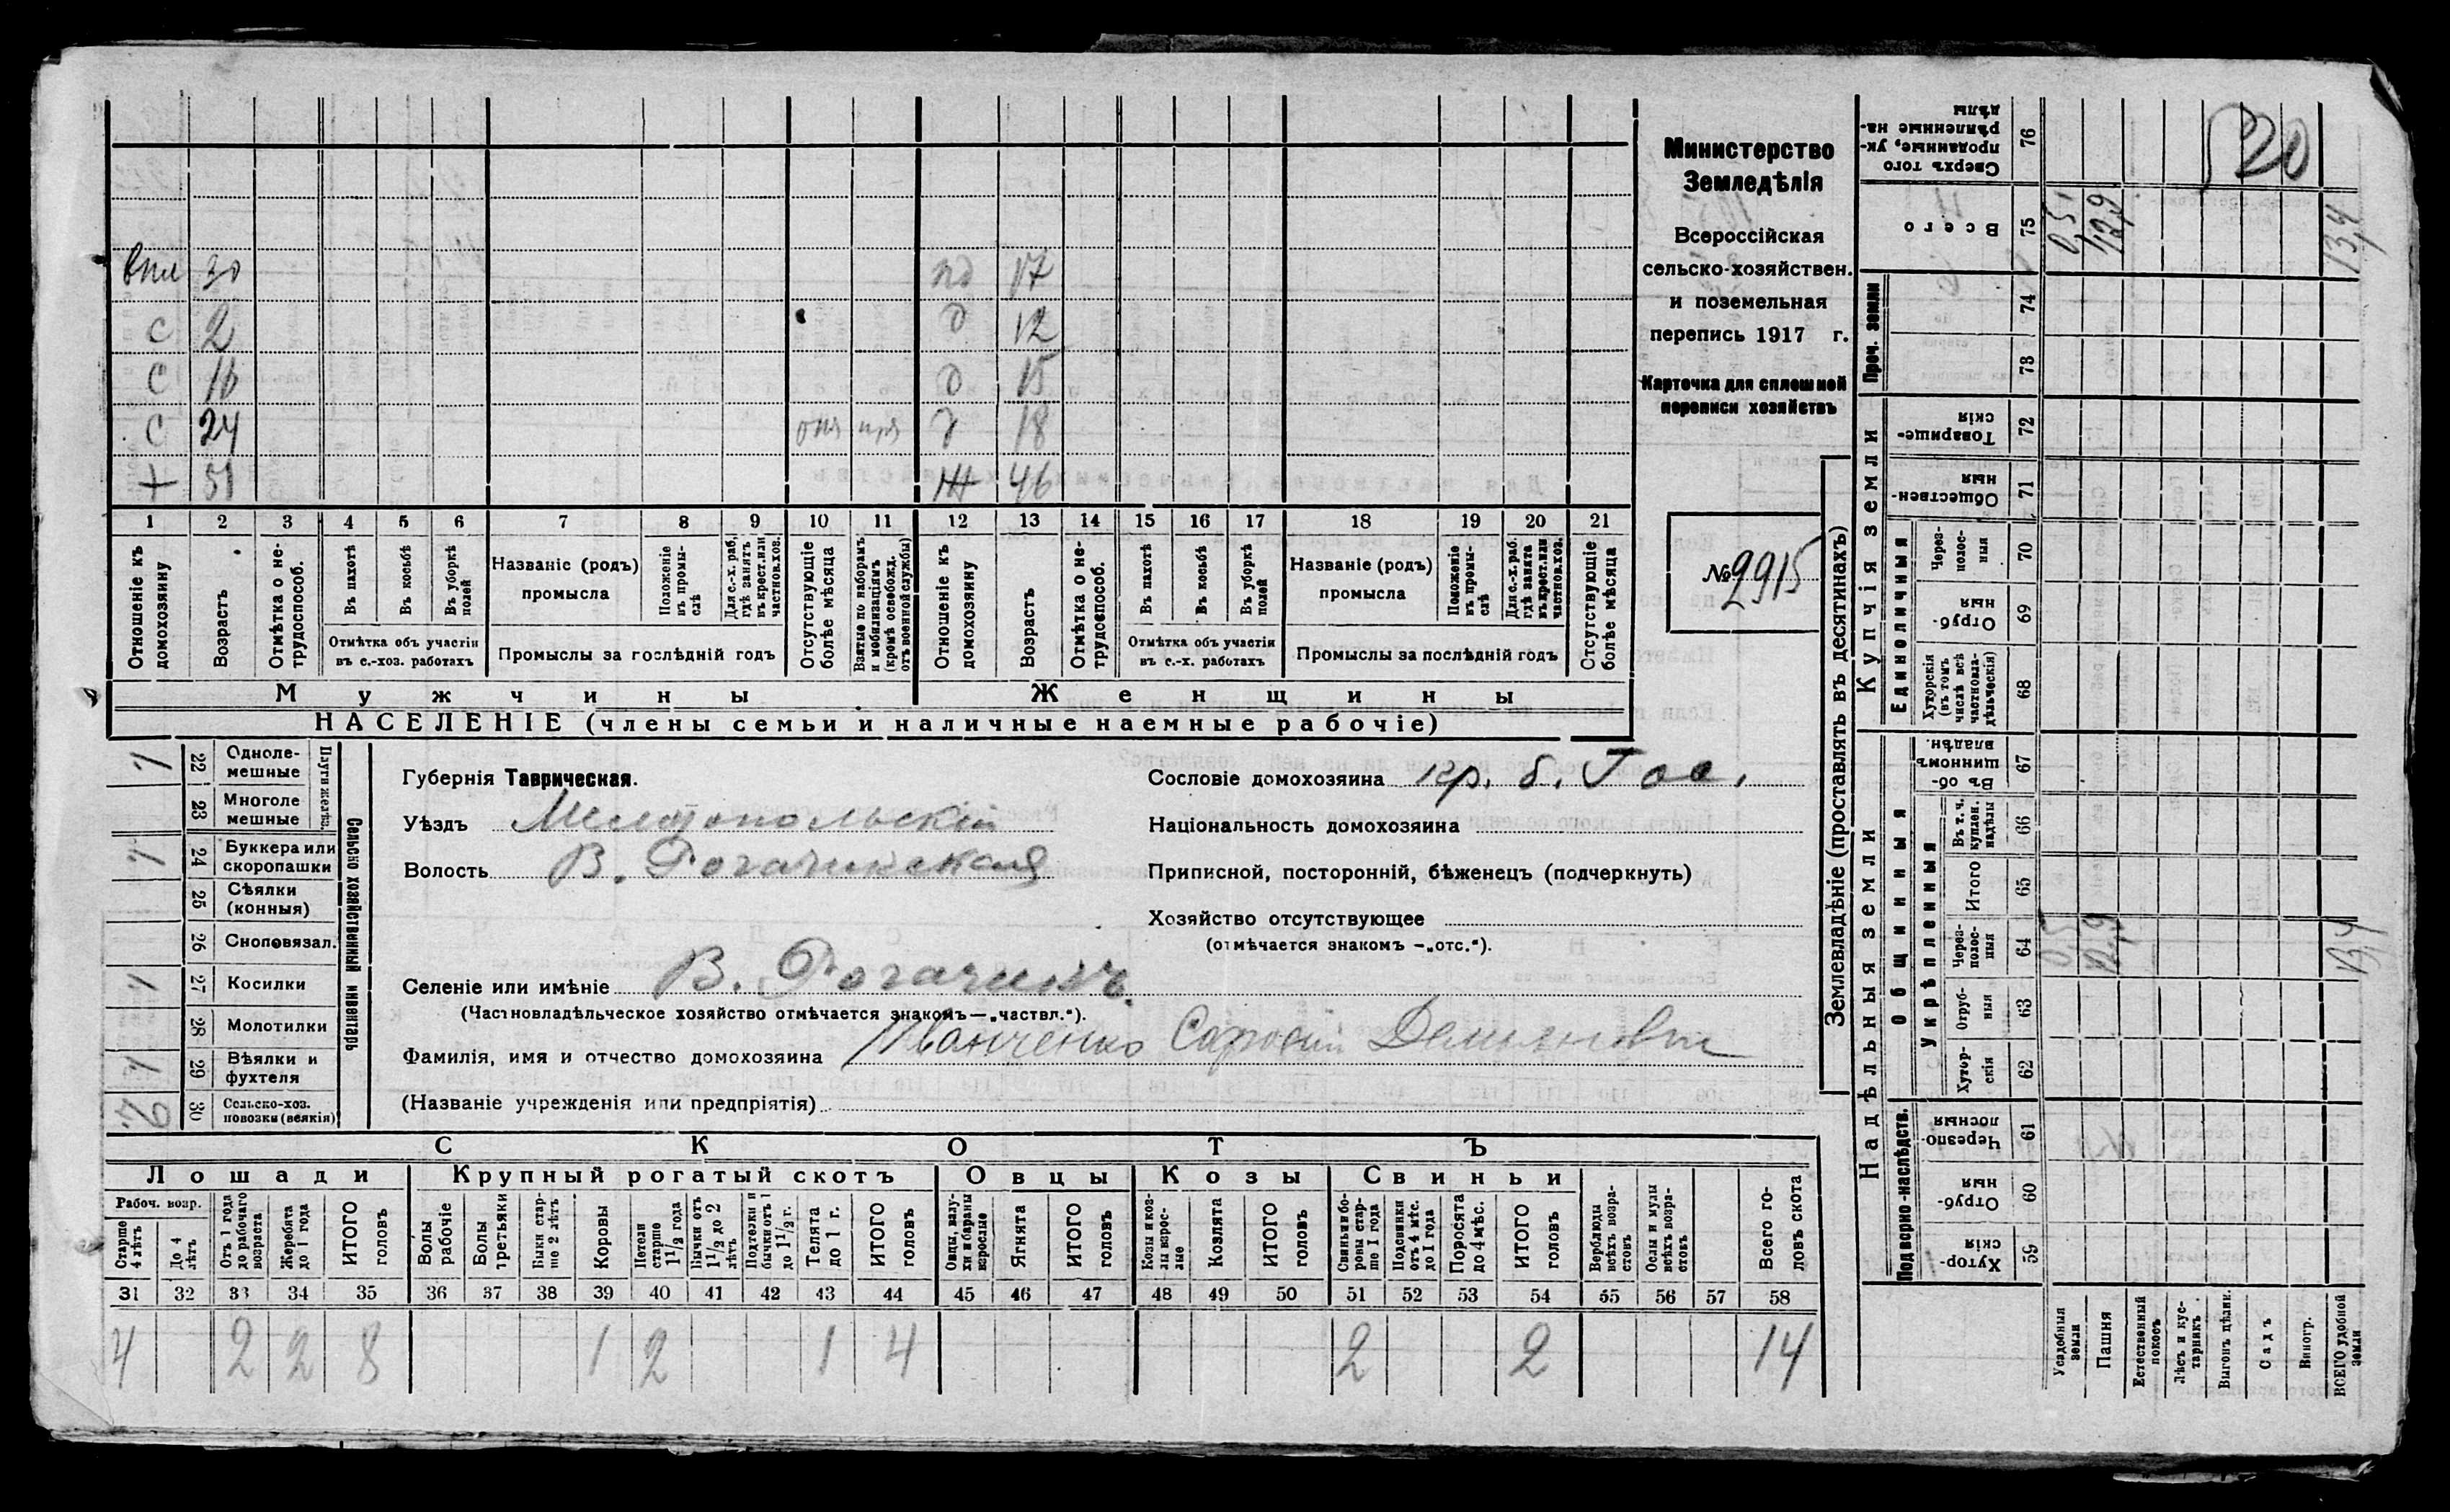 Министерство
Земледѣлія
Всероссійская
сельско-хозяйствен.
и поземельная
перепись 1917 г.
Карточка для сплошной
переписи хозяйствъ
№ 2915
520
впл 30 17
с 2 д 12
с 16 д 15
с 24 д 18
+ 51 ж 46
1 2 3 4 5 6 7 8 9 10 11 12 13 14 15 16 17 18 19 20 21
Отношеніе къ домохозяину
Возрастъ
Отмѣтка о не-трудоспособ.
Въ пахотѣ
Въ косьбѣ
Въ уборкѣ полей
Отмѣтка объ участіи въ с.-хоз. работахъ
Названіе (родъ) промысла
Положеніе въ промы-слѣ
Для с.-х. раб. гдѣ занятъ въ крест. или частновл. хоз.
Промыслы за послѣдній годъ
Отсутствующіе болѣе мѣсяца
Взятые по наборамъ и мобилизаціямъ (кромѣ освобожд. отъ военной службы)
Отношеніе къ домохозяину
Возрастъ
Отмѣтка о не-трудоспособ.
Въ пахотѣ
Въ косьбѣ
Въ уборкѣ полей
Отмѣтка объ участіи въ с.-х. работахъ
Названіе (родъ) промысла
Положеніе въ промы-слѣ
Для с.-х. раб. гдѣ занята въ крест. или частновл. хоз.
Промыслы за послѣдній годъ
Отсутствующіе болѣе мѣсяца
Мужчины Женщины
НАСЕЛЕНІЕ (члены семьи и наличные наемные рабочіе)
Сельско хозяйственный инвентарь
Плуги желѣз.
22 Одноле-мешные 1
23 Многоле мешные
24 Буккера или скоропашки 1
25 Сѣялки (конныя)
26 Сноповязал.
27 Косилки 1
28 Молотилки
29 Вѣялки и фухтеля 1
30 Сельско-хоз. повозки (всякія) 2
Губернія Таврическая.
Уѣздъ Мелитопольскій
Волость В. Рогачикская
Селеніе или имѣніе В. Рогачикъ.
(Частновладѣльческое хозяйство отмѣчается знакомъ—„частвл.“).
Фамилія, имя и отчество домохозяина Иванченко Демьяновъ
(Названіе учрежденія или предпріятія)
Сословіе домохозяина кр. б. Гос.
Національность домохозяина
Приписной, посторонній, бѣженецъ (подчеркнуть)
Хозяйство отсутствующее
(отмѣчается знакомъ —„отс.“).
СКОТЪ
Лошади Крупный рогатый скотъ Овцы Козы Свиньи
Рабоч. возр.
Старше 4 лѣтъ
До 4 лѣтъ
Отъ 1 года до рабочаго возраста
Жеребята до 1 года
ИТОГО головъ
Волы рабочіе
Волы третьяки
Быки стар-ше 2 лѣтъ
Коровы
Нетели старше 1 1/2 года
Бычки отъ 1 1/2 до 2 лѣтъ
Подтелки и бычки отъ 1 до 1 1/2 г.
Телята до 1 г.
ИТОГО головъ
Овцы, валу-хи и бараны взрослые
Ягнята
ИТОГО головъ
Козы и коз-лы взрос-лые
Козлята
ИТОГО головъ
Свиньи и бо-ровы стар-ше 1 года
Подсвинки отъ 4 мѣс. до 1 года
Поросята до 4 мѣс.
ИТОГО головъ
Верблюды всѣхъ возра-стовъ
Ослы и мулы всѣхъ возра-стовъ
Всего го-ловъ скота
31 32 33 34 35 36 37 38 39 40 41 42 43 44 45 46 47 48 49 50 51 52 53 54 55 56 57 58
4 2 2 8 1 2 1 4 2 2 14
Землевладѣніе (проставлять въ десятинахъ)
Надѣльныя земли Купчія земли Проч. земли
Подворно-наслѣдств.
Общинныя
Укрѣпленныя
Единоличныя
59 Хутор-скія
60 Отруб-ныя
61 Черезпо-лосныя
62 Хутор-скія
63 Отруб-ныя
64 Через-полос-ныя 0,5 12,9 13,4
65 Итого
66 Въ т. ч. куплен. надѣлы
67 Въ об-щинномъ владѣн.
68 Хуторскія (въ томъ числѣ всѣ частновла-дѣльческія)
69 Отруб-ныя
70 Через-полос-ныя
71 Обществен-ныя
72 Товарище-скія
73
74
75 Всего 0,5 12,9 13,4
76 Сверхъ того проданные, ук-рѣпленные на-дѣлы
Усадебныя земли
Пашня
Естественный покосъ
Лѣсъ и кус-тарникъ
Выгонъ цѣлин.
Садъ
Виногр.
ВСЕГО удобной земли